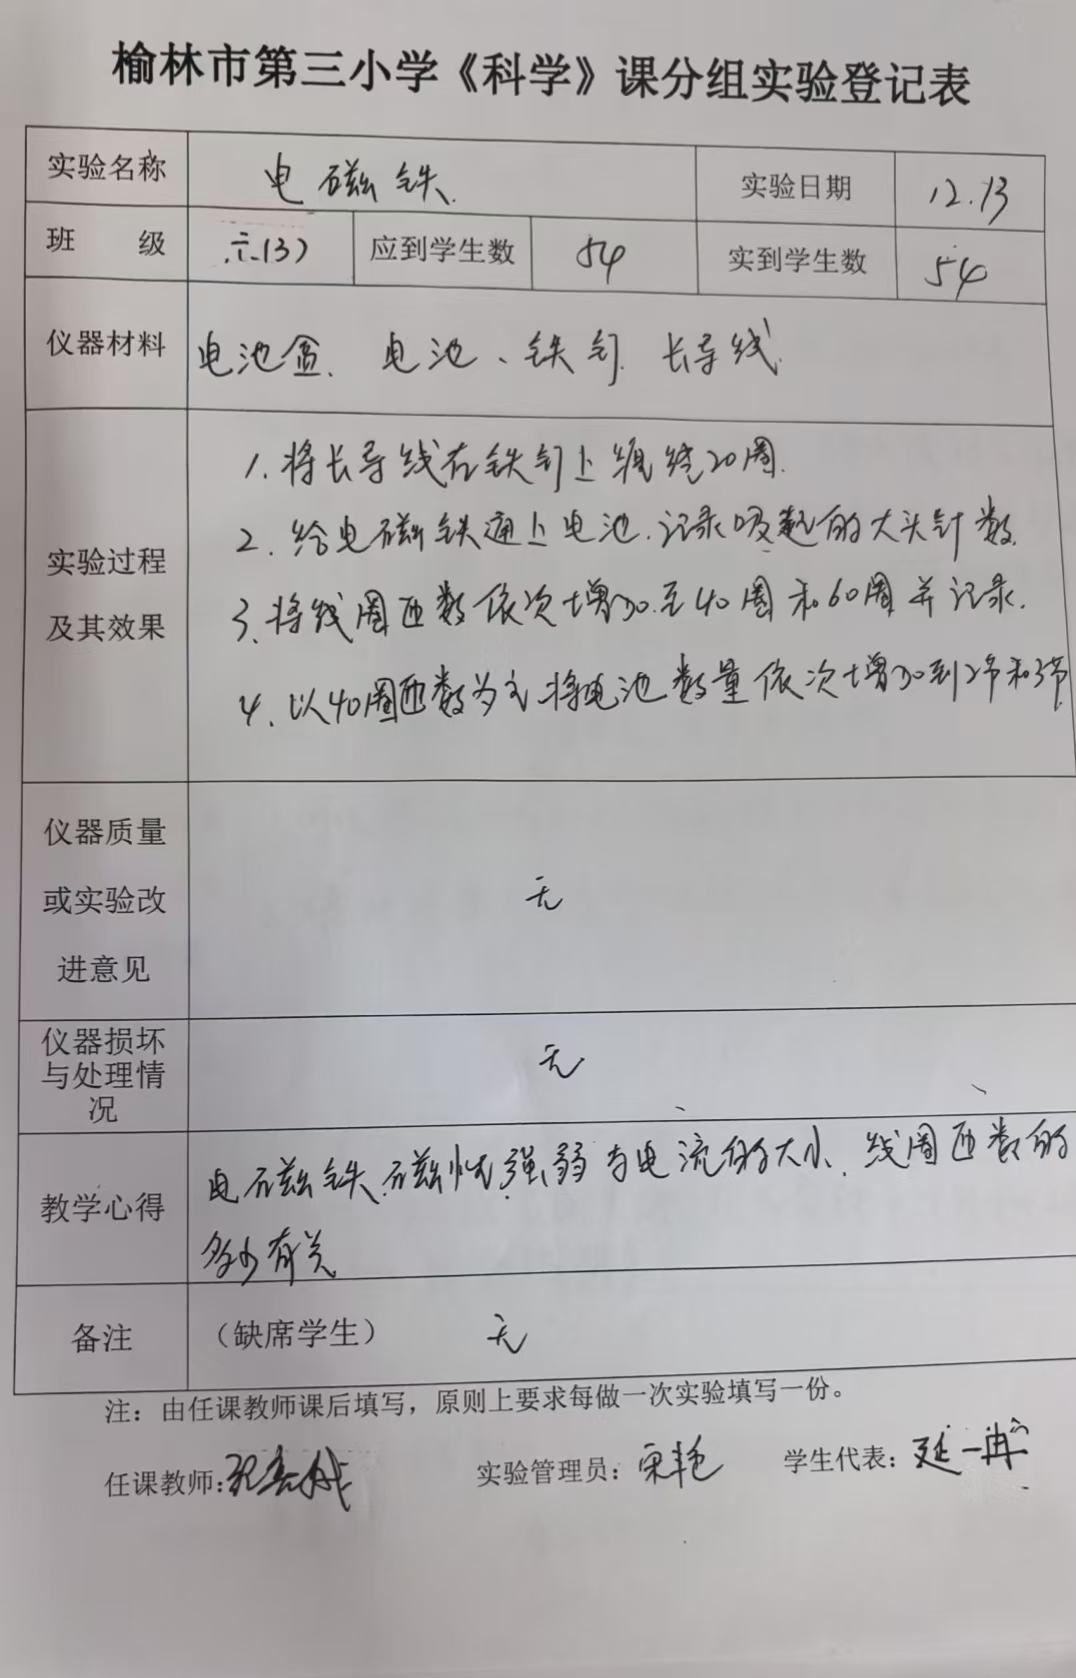 榆林市第三小学《科学》课分组实验登记表
实验名称 电磁铁. 实验日期 12.13
班 级 六(3) 应到学生数 54 实到学生数 54
仪器材料 电池盒、电池、铁钉、长导线.
实验过程
及其效果
1. 将长导线在铁钉上缠绕20圈.
2. 给电磁铁通上电池.记录吸起的大头针数.
3. 将线圈匝数依次增加至40圈和60圈并记录.
4. 以40圈匝数为主,将电池数量依次增加到2节和3节
仪器质量
或实验改
进意见
无
仪器损坏
与处理情
况
无
教学心得
电磁铁磁性强弱与电流的大小、线圈匝数的
多少有关
备注 (缺席学生) 无
注：由任课教师课后填写，原则上要求每做一次实验填写一份。
任课教师: 实验管理员: 宋艳 学生代表: 延一冉